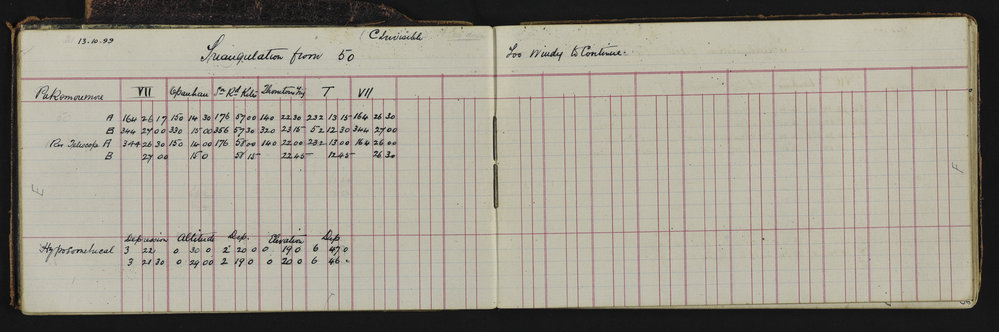 13.10.99
(C Invisible
Triangulation from 50
Too Windy to Continue.
Pukomoremore VII Rd Kilo T VII
A 164 26 17 150 14 30 176 57 00 140 22 30 232 13 15 164 26 30
B 344 27 00 330 15 00 356 57 30 320 23 15 52 12 30 344 27 00
Rev Telescope A 344 26 30 150 14 00 176 58 00 140 22 00 232 13 00 164 26 00
B 27 00 15 0 58 15 22 45 12 45 26 30
Depression Altitude Dep. Elevation Dep
Hypsometrical 3 22 0 30 0 2 20 0 0 19 0 6 47 0
3 21 30 0 29 00 2 19 0 0 20 0 6 46